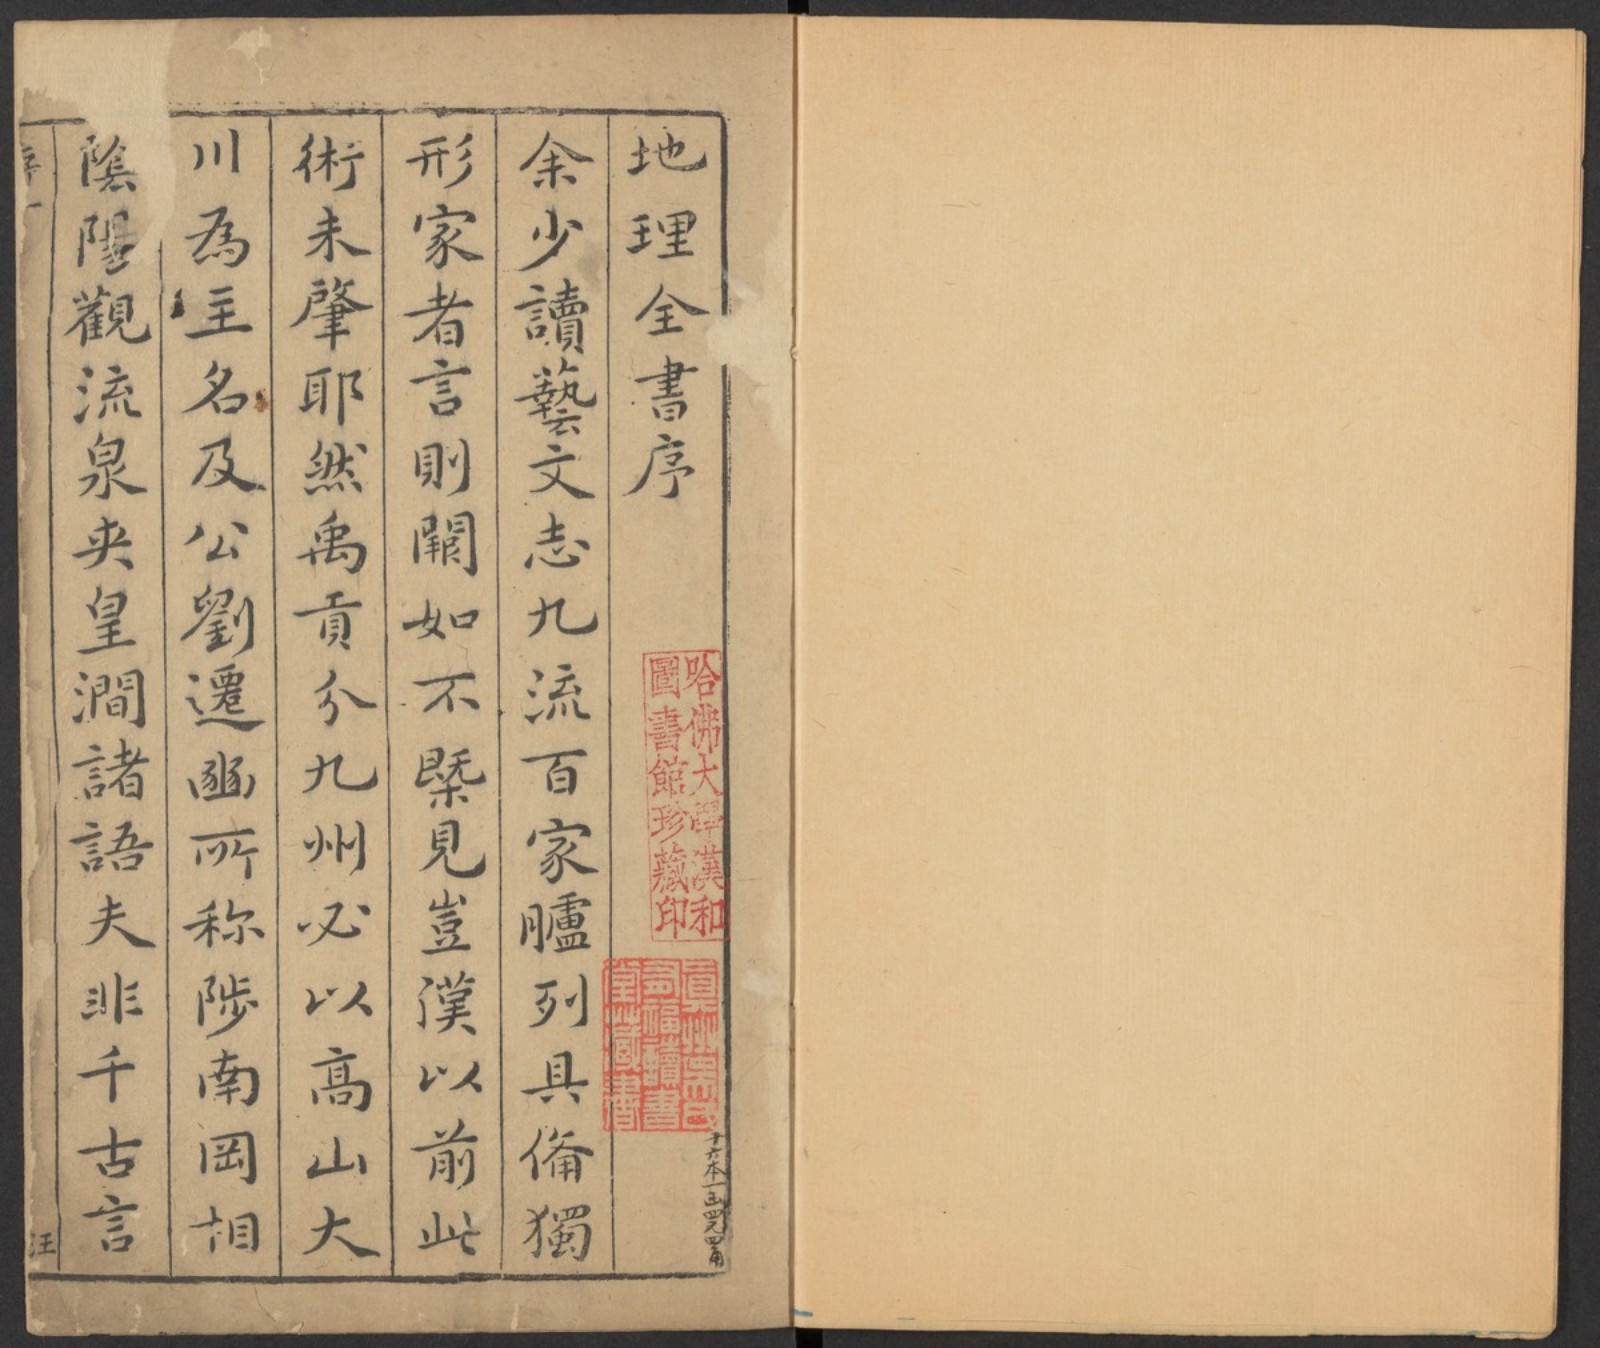 地理全書序
哈佛大學漢和
圖書館珍藏印
真州吳氏
有福讀書
堂藏書
十六本一函四元四角
余少讀藝文志九流百家臚列具備獨
形家者言則闕如不槩見豈漢以前此
術未肇耶然禹貢分九州必以高山大
川為主名及公劉遷豳所称陟南岡相
陰陽觀流泉夾皇澗諸語夫非千古言
序一
汪